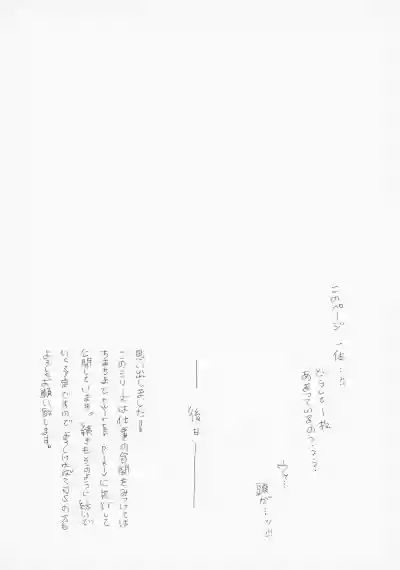 このページ 一体…!!
どうして一枚
あまっているの?・?・?
ウッ…
頭が…ッ!!
後日
思い出しました!!
このシリーズは仕事の合間をみつけては
ちまちまと に抜粋して
公開しています。続きもそのように紡いで
いく予定ですので よろしければそちらの方も
よろしくお願い致します。